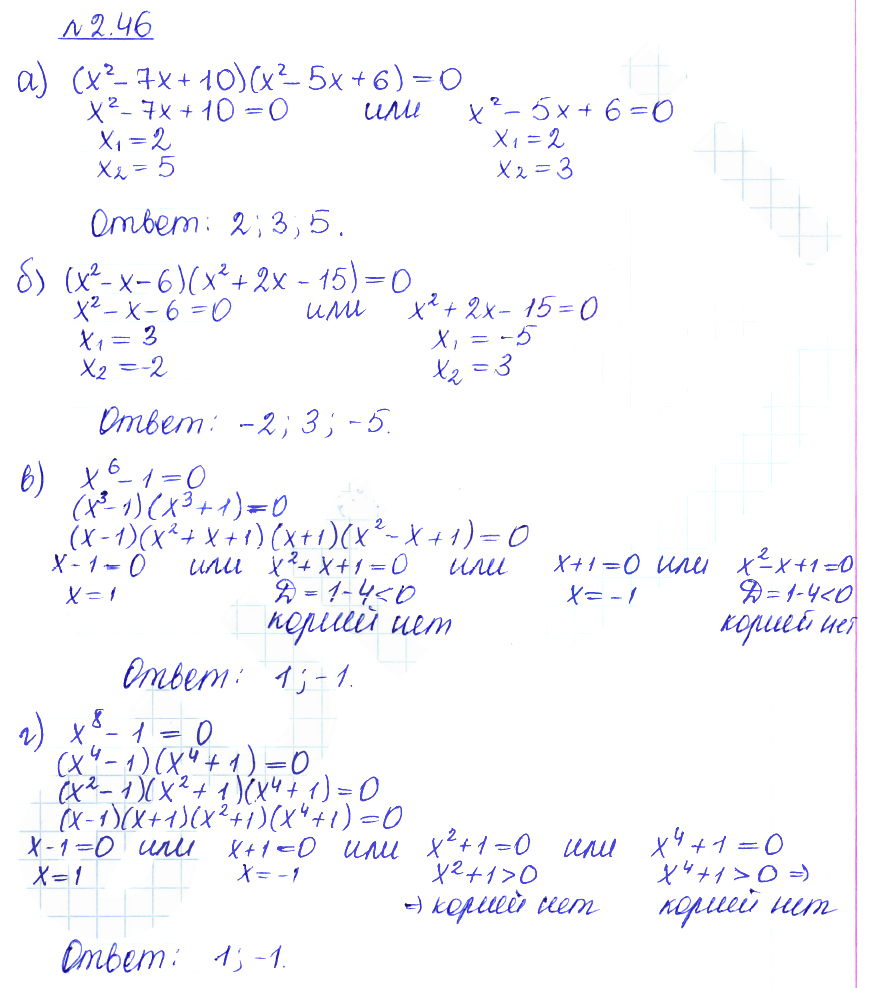 № 2.46
а) (x²-7x+10)(x²-5x+6)=0
x²-7x+10=0 или x²-5x+6=0
x₁=2 x₁=2
x₂=5 x₂=3
Ответ: 2; 3; 5.
б) (x²-x-6)(x²+2x-15)=0
x²-x-6=0 или x²+2x-15=0
x₁=3 x₁=-5
x₂=-2 x₂=3
Ответ: -2; 3; -5.
в) x⁶-1=0
(x³-1)(x³+1)=0
(x-1)(x²+x+1)(x+1)(x²-x+1)=0
x-1=0 или x²+x+1=0 или x+1=0 или x²-x+1=0
x=1 D=1-4<0 x=-1 D=1-4<0
корней нет корней нет
Ответ: 1; -1.
г) x⁸-1=0
(x⁴-1)(x⁴+1)=0
(x²-1)(x²+1)(x⁴+1)=0
(x-1)(x+1)(x²+1)(x⁴+1)=0
x-1=0 или x+1=0 или x²+1=0 или x⁴+1=0
x=1 x=-1 x²+1>0 x⁴+1>0 ⇒
⇒ корней нет корней нет
Ответ: 1; -1.